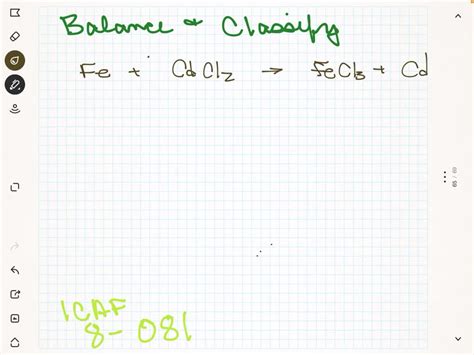 Balance & Classify
Fe + CdCl2 → FeCl3 + Cd
ICAF
8-081